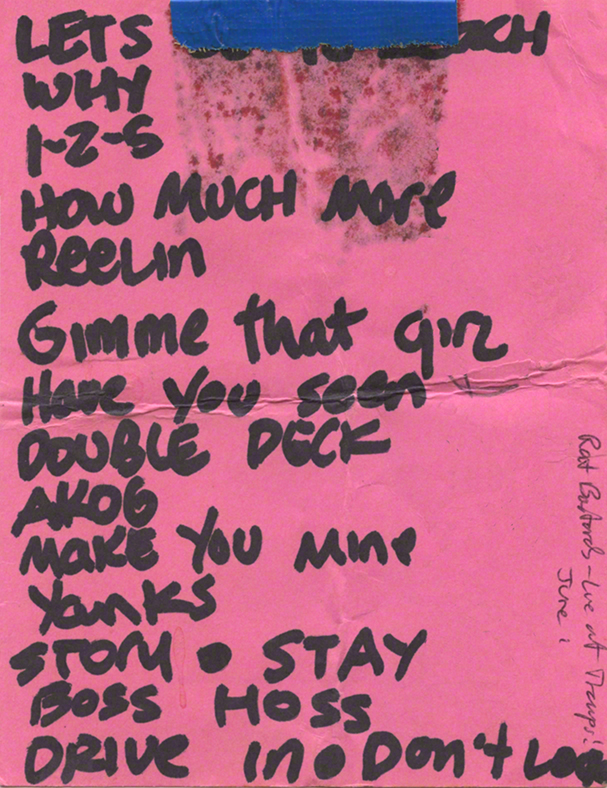 LETS GO TO BEACH
WHY
1-2-5
HOW MUCH MORE
Reelin
Gimme that girl
Have You seen
DOUBLE DECK
AKOG
MAKE YOU MINE
Yanks
STORY • STAY
BOSS HOSS
DRIVE In • Don't Look
Rat Bastards - Live at Tramps!
June